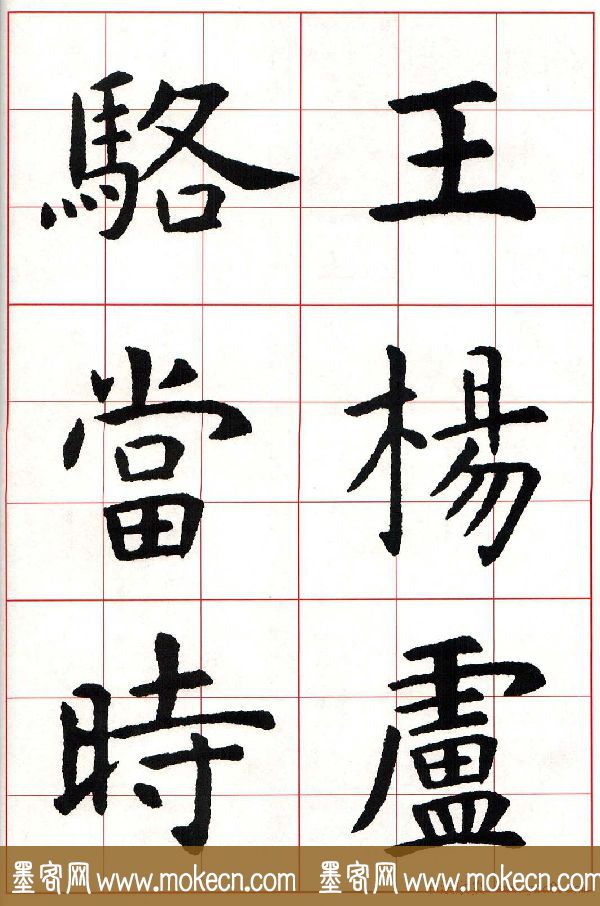 王楊盧
駱當時
墨客网 www.mokecn.com 墨客网 www.mokecn.com